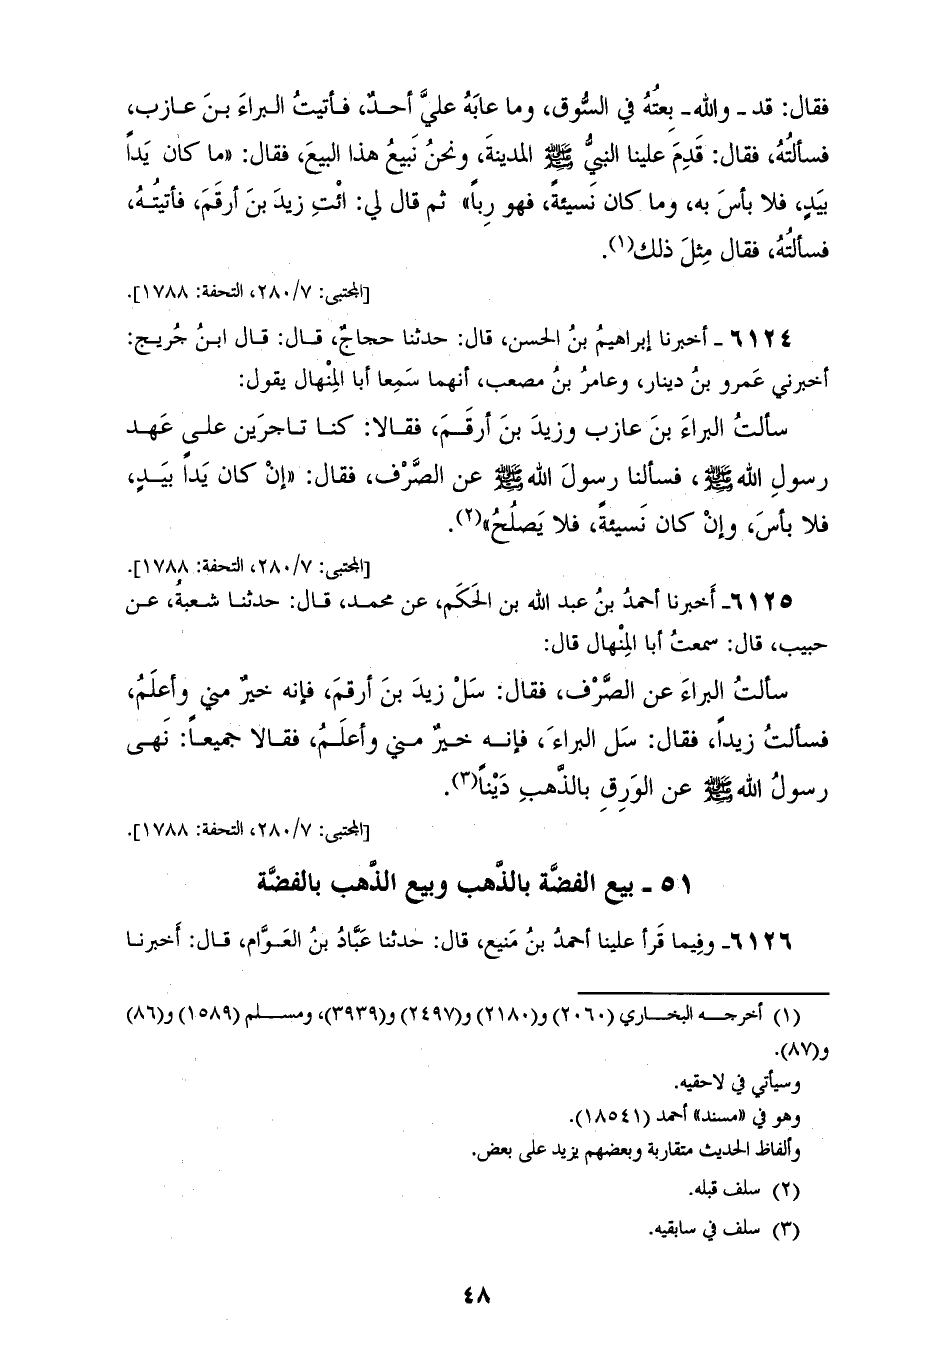 فقال: قد ـ والله ـ بعتُهُ في السُّوق، وما عابَهُ عليَّ أحـدٌ، فـأتيتُ البراءَ بـنَ عـازب،
فسألتُهُ، فقال: قَدِمَ علينا النبيُّ ﷺ المدينةَ، ونحنُ نَبيعُ هذا البيعَ، فقال: «ما كان يَداً
بيَدٍ، فلا بأسَ به، وما كان نَسيئةً، فهو رِباً» ثم قال لي: ائْتِ زيدَ بنَ أرقَمَ، فأتيتُـهُ،
فسألتُهُ، فقال مِثلَ ذلك(١).
[المجتبى: ٢٨٠/٧، التحفة: ١٧٨٨].
٦١٢٤ ـ أخبرنا إبراهيمُ بنُ الحسن، قال: حدثنا حجاجٌ، قـال: قـال ابـنُ جُريـج:
أخبرني عَمرو بنُ دينار، وعامرُ بنُ مصعب، أنهما سَمِعا أبا المِنْهال يقول:
سألتُ البراءَ بنَ عازب وزيدَ بنَ أرقَـمَ، فقـالا: كنـا تـاجرَين علـى عَهـد
رسولِ الله ﷺ، فسألنا رسولَ الله ﷺ عن الصَّرْف، فقال: «إنْ كان يَداً بيَـدٍ،
فلا بأسَ، وإنْ كان نَسيئةً، فلا يَصلُحُ»(٢).
[المجتبى: ٢٨٠/٧، التحفة: ١٧٨٨].
٦١٢٥ ـ أخبرنا أحمدُ بنُ عبد الله بن الحَكَم، عن محمـد، قـال: حدثنـا شـعبةُ، عـن
حبيب، قال: سمعتُ أبا المِنْهال قال:
سألتُ البراءَ عن الصَّرْف، فقال: سَلْ زيدَ بنَ أرقمَ، فإنه خيرٌ مني وأعلَمُ،
فسألتُ زيداً، فقال: سَل البراءَ، فإنـه خـيرٌ مـني وأعلَـمُ، فقـالا جميعـاً: نَهـى
رسولُ الله ﷺ عن الوَرِقِ بالذَّهبِ دَيْناً(٣).
[المجتبى: ٢٨٠/٧، التحفة: ١٧٨٨].
٥١ ـ بيع الفضَّة بالذَّهب وبيع الذَّهب بالفضَّة
٦١٢٦ ـ وفِيما قَرأ علينا أحمدُ بنُ مَنيع، قال: حدثنا عَبَّادُ بنُ العَـوَّام، قـال: أخبرنـا
(١) أخرجـه البخـاري (٢٠٦٠) و(٢١٨٠) و(٢٤٩٧) و(٣٩٣٩)، ومسـلم (١٥٨٩) و(٨٦)
و(٨٧).
وسيأتي في لاحقيه.
وهو في «مسند» أحمد (١٨٥٤١).
وألفاظ الحديث متقاربة وبعضهم يزيد على بعض.
(٢) سلف قبله.
(٣) سلف في سابقيه.
٤٨